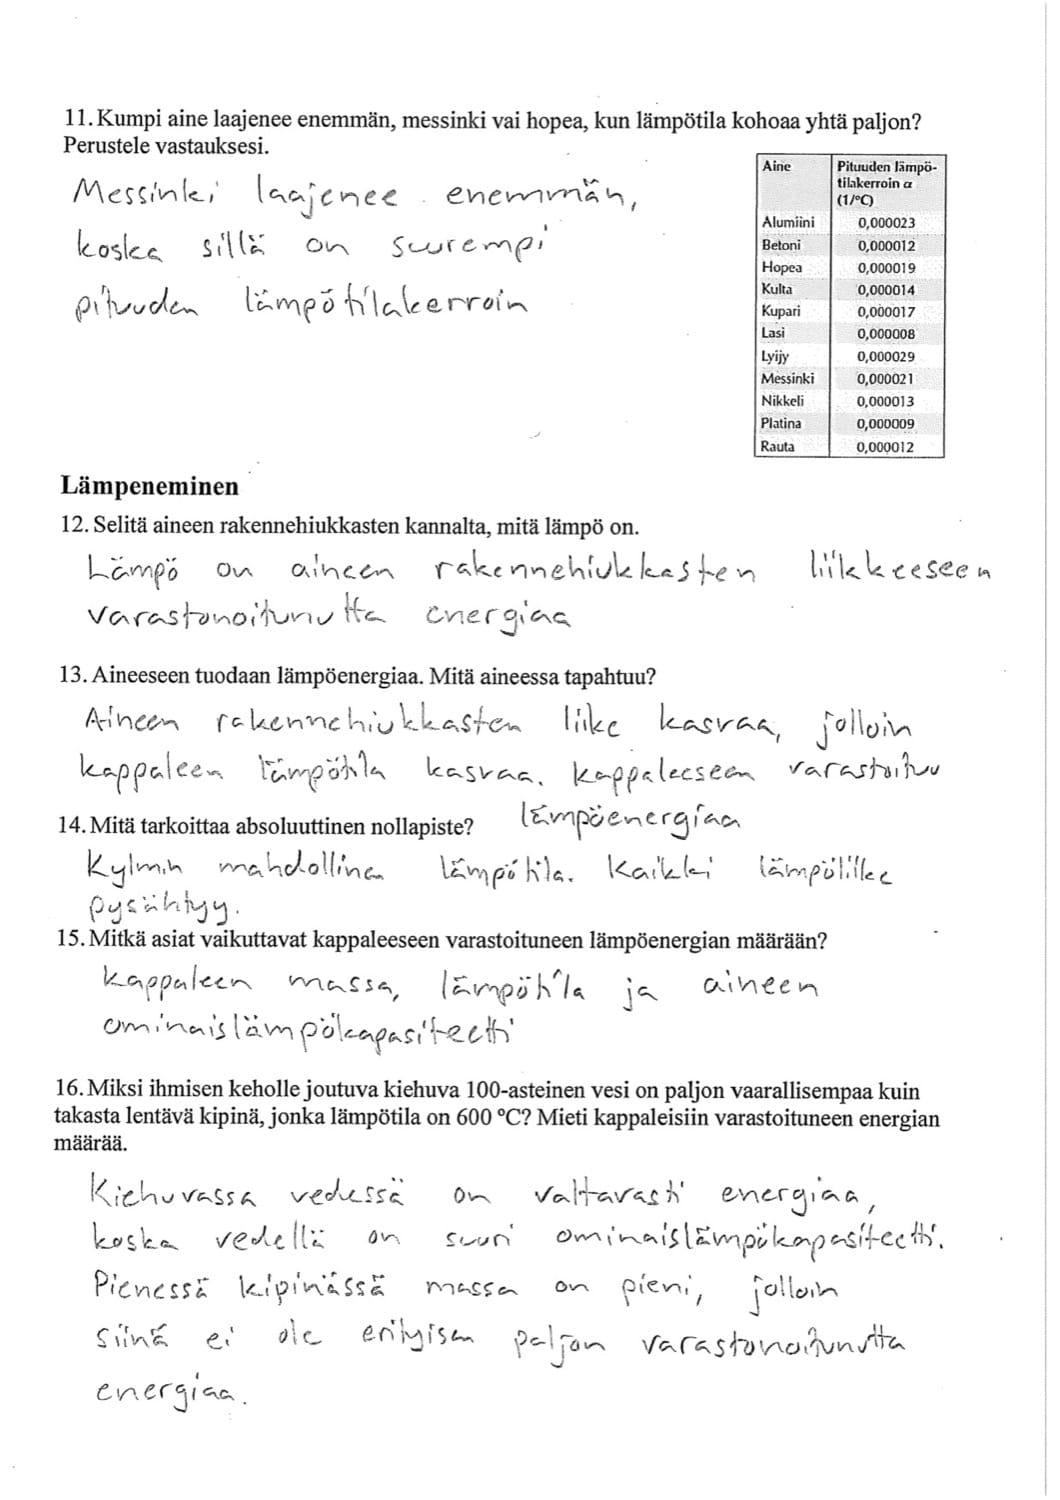 11. Kumpi aine laajenee enemmän, messinki vai hopea, kun lämpötila kohoaa yhtä paljon?
Perustele vastauksesi.
Messinki laajenee enemmän,
koska sillä on suurempi
pituuden lämpötilakerroin
Aine Pituuden lämpö-
tilakerroin α
(1/°C)
Alumiini 0,000023
Betoni 0,000012
Hopea 0,000019
Kulta 0,000014
Kupari 0,000017
Lasi 0,000008
Lyijy 0,000029
Messinki 0,000021
Nikkeli 0,000013
Platina 0,000009
Rauta 0,000012
Lämpeneminen
12. Selitä aineen rakennehiukkasten kannalta, mitä lämpö on.
Lämpö on aineen rakennehiukkasten liikkeeseen
varastonoitunutta energiaa
13. Aineeseen tuodaan lämpöenergiaa. Mitä aineessa tapahtuu?
Aineen rakennehiukkasten liike kasvaa, jolloin
kappaleen lämpötila kasvaa. Kappaleeseen varastoituu
lämpöenergiaa
14. Mitä tarkoittaa absoluuttinen nollapiste?
Kylmin mahdollinen lämpötila. Kaikki lämpöliike
pysähtyy.
15. Mitkä asiat vaikuttavat kappaleeseen varastoituneen lämpöenergian määrään?
Kappaleen massa, lämpötila ja aineen
ominaislämpökapasiteetti
16. Miksi ihmisen keholle joutuva kiehuva 100-asteinen vesi on paljon vaarallisempaa kuin
takasta lentävä kipinä, jonka lämpötila on 600 °C? Mieti kappaleisiin varastoituneen energian
määrää.
Kiehuvassa vedessä on valtavasti energiaa,
koska vedellä on suuri ominaislämpökapasiteetti.
Pienessä kipinässä massa on pieni, jolloin
siinä ei ole erityisen paljon varastonoitunutta
energiaa.